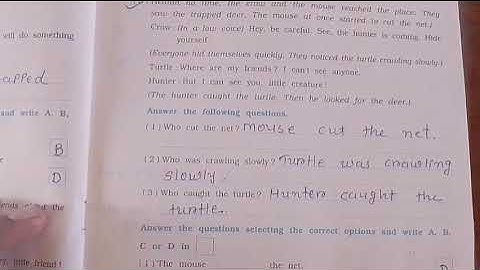 Within no time, the crow and the mouse reached the place. They
saw the trapped deer. The mouse at once started to cut the net.)
Crow: (In a low voice) Hey, be careful. See, the hunter is coming. Hide
yourself.
(Everyone hid themselves quickly. They noticed the turtle crawling slowly.)
Turtle: Where are my friends? I can't see anyone.
Hunter: But I can see you, little creature!
(The hunter caught the turtle. Then he looked for the deer.)
Answer the following questions.
(1) Who cut the net? Mouse cut the net.
(2) Who was crawling slowly? Turtle was crawling
slowly.
(3) Who caught the turtle? Hunters caught the
turtle.
Answer the questions selecting the correct options and write A, B,
C or D in
(1) The mouse the net.
will do something
apped
and write A, B,
B
D
the
and write
ry, little friend!